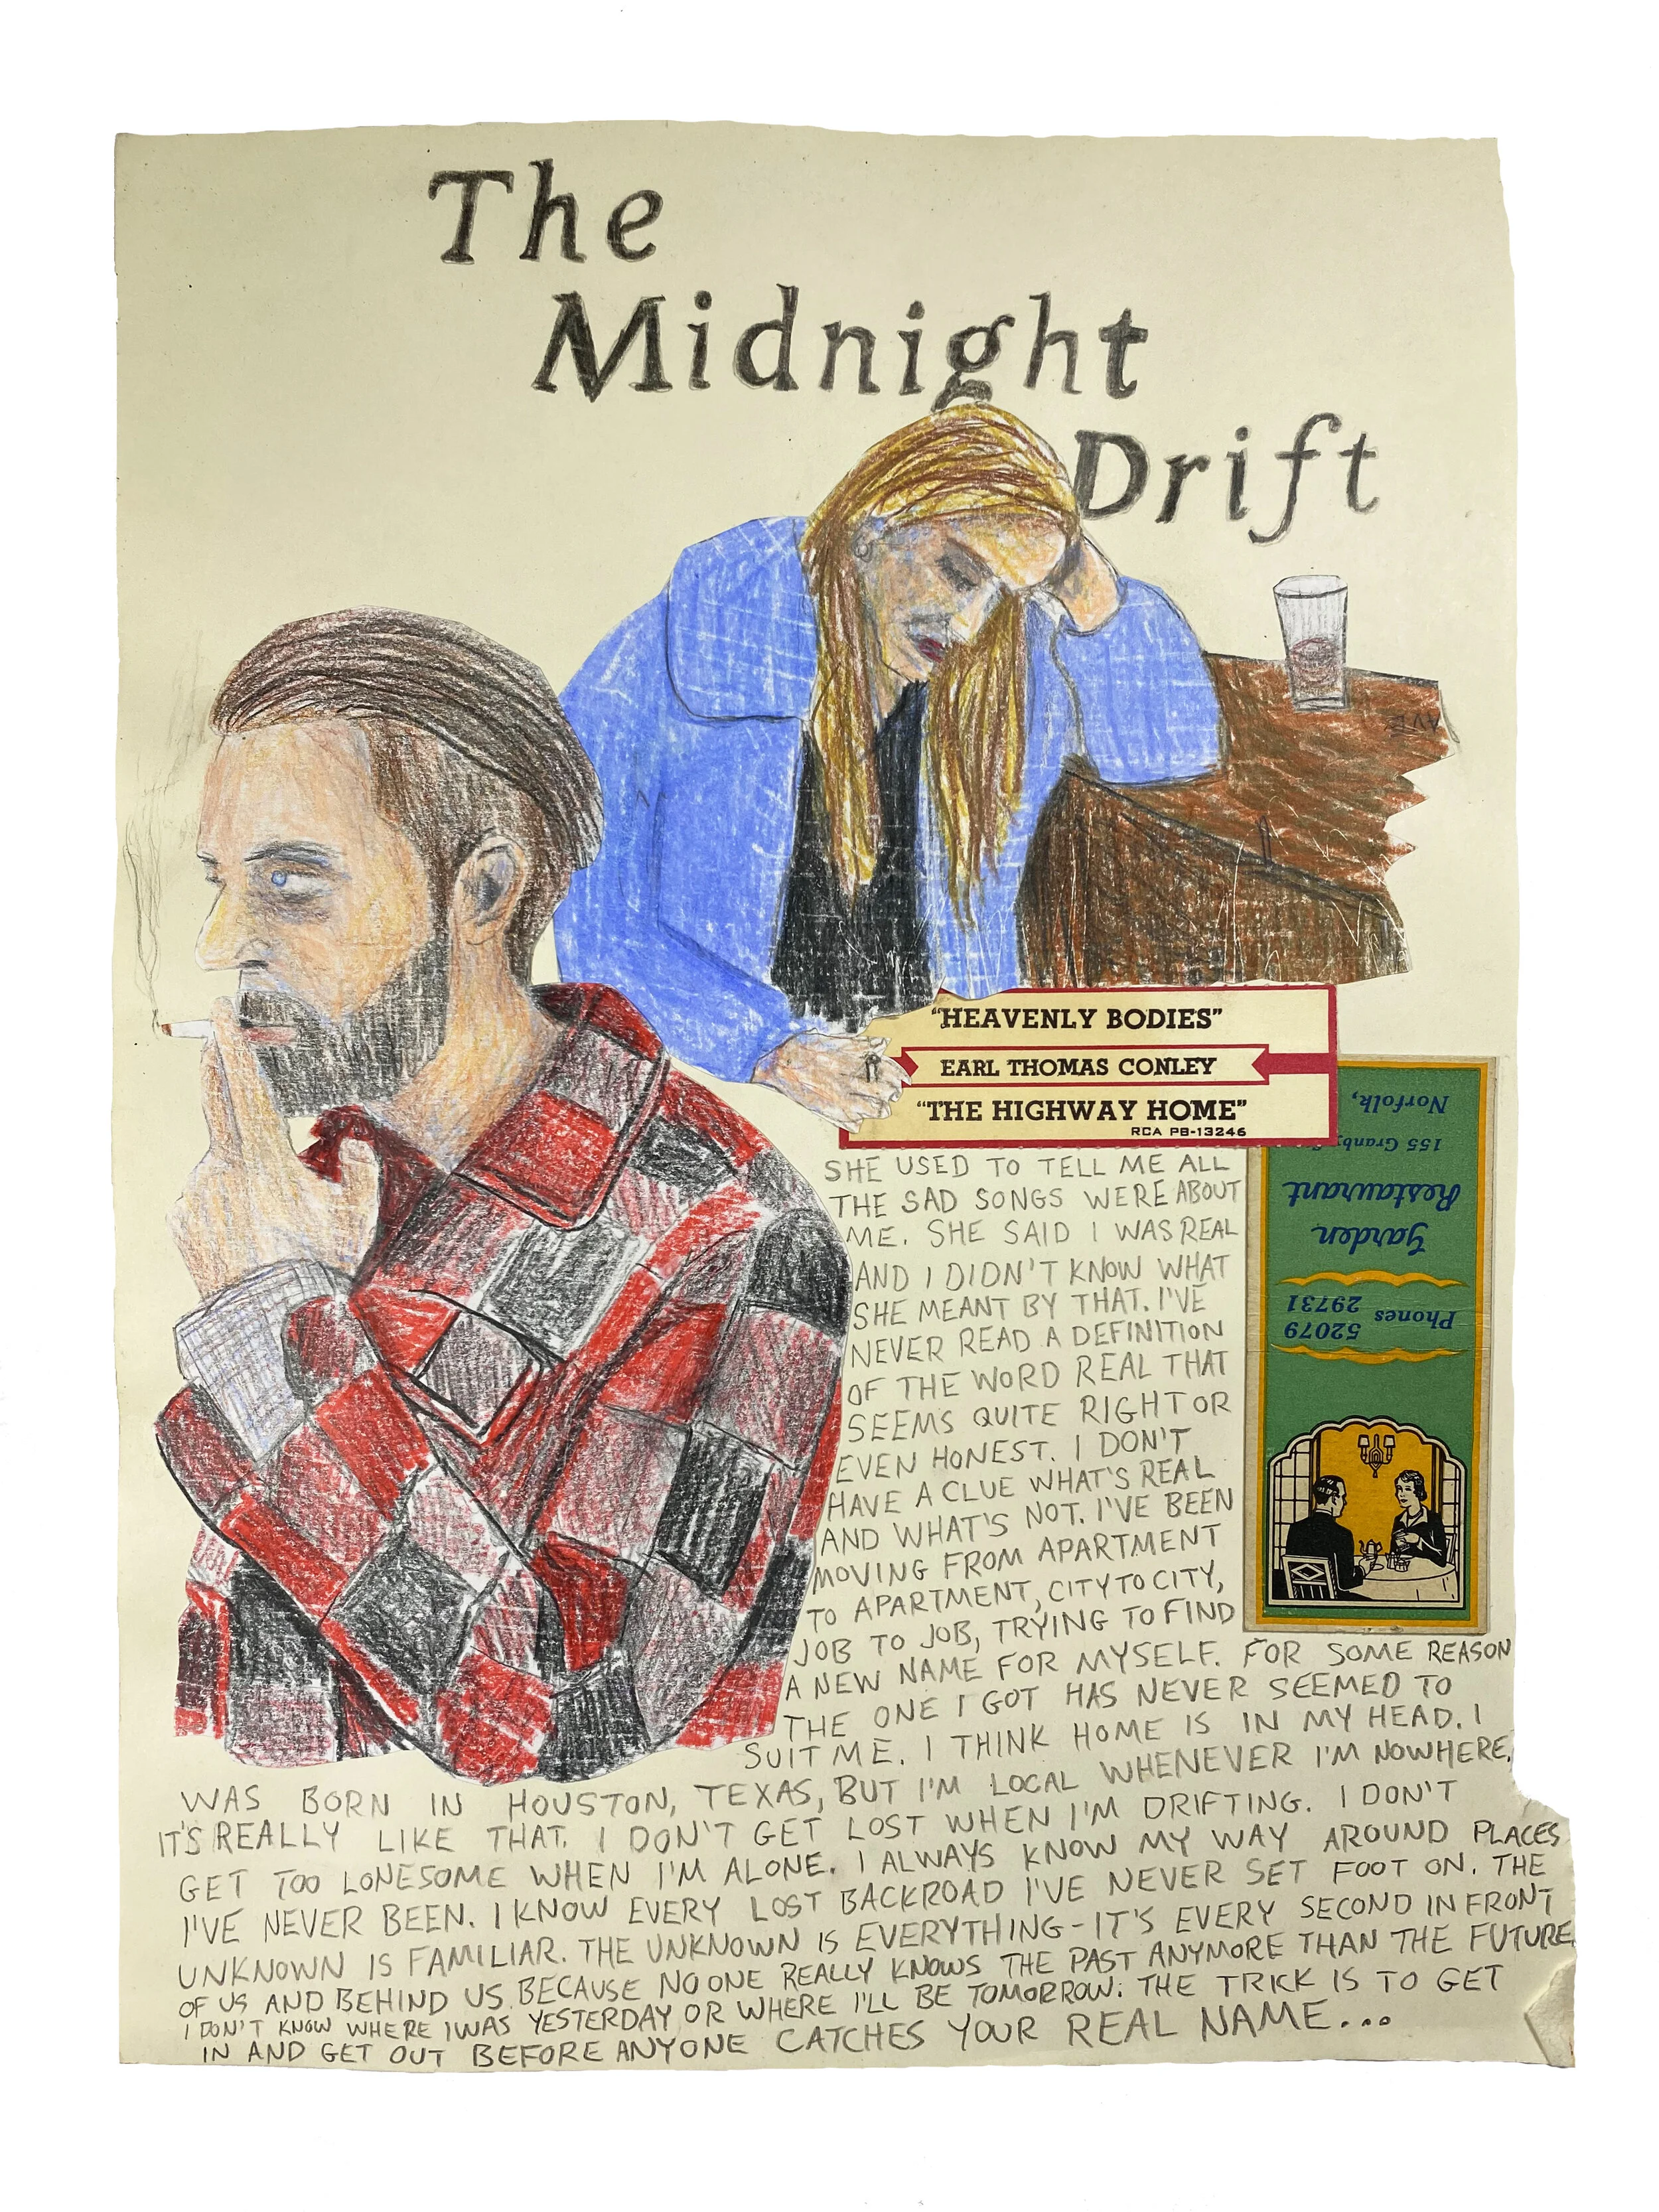 The
Midnight
Drift
AVE
"HEAVENLY BODIES"
EARL THOMAS CONLEY
"THE HIGHWAY HOME"
RCA PB-13246
SHE USED TO TELL ME ALL
THE SAD SONGS WERE ABOUT
ME. SHE SAID I WAS REAL
AND I DIDN'T KNOW WHAT
SHE MEANT BY THAT. I'VE
NEVER READ A DEFINITION
OF THE WORD REAL THAT
SEEMS QUITE RIGHT OR
EVEN HONEST. I DON'T
HAVE A CLUE WHAT'S REAL
AND WHAT'S NOT. I'VE BEEN
MOVING FROM APARTMENT
TO APARTMENT, CITY TO CITY,
JOB TO JOB, TRYING TO FIND
A NEW NAME FOR MYSELF. FOR SOME REASON
THE ONE I GOT HAS NEVER SEEMED TO
SUIT ME. I THINK HOME IS IN MY HEAD. I
WAS BORN IN HOUSTON, TEXAS, BUT I'M LOCAL WHENEVER I'M NOWHERE.
IT'S REALLY LIKE THAT. I DON'T GET LOST WHEN I'M DRIFTING. I DON'T
GET TOO LONESOME WHEN I'M ALONE. I ALWAYS KNOW MY WAY AROUND PLACES
I'VE NEVER BEEN. I KNOW EVERY LOST BACKROAD I'VE NEVER SET FOOT ON. THE
UNKNOWN IS FAMILIAR. THE UNKNOWN IS EVERYTHING - IT'S EVERY SECOND IN FRONT
OF US AND BEHIND US BECAUSE NO ONE REALLY KNOWS THE PAST ANYMORE THAN THE FUTURE.
I DON'T KNOW WHERE I WAS YESTERDAY OR WHERE I'LL BE TOMORROW. THE TRICK IS TO GET
IN AND GET OUT BEFORE ANYONE CATCHES YOUR REAL NAME...
Phones 52079
29731
Garden
Restaurant
155 Granby
Norfolk,